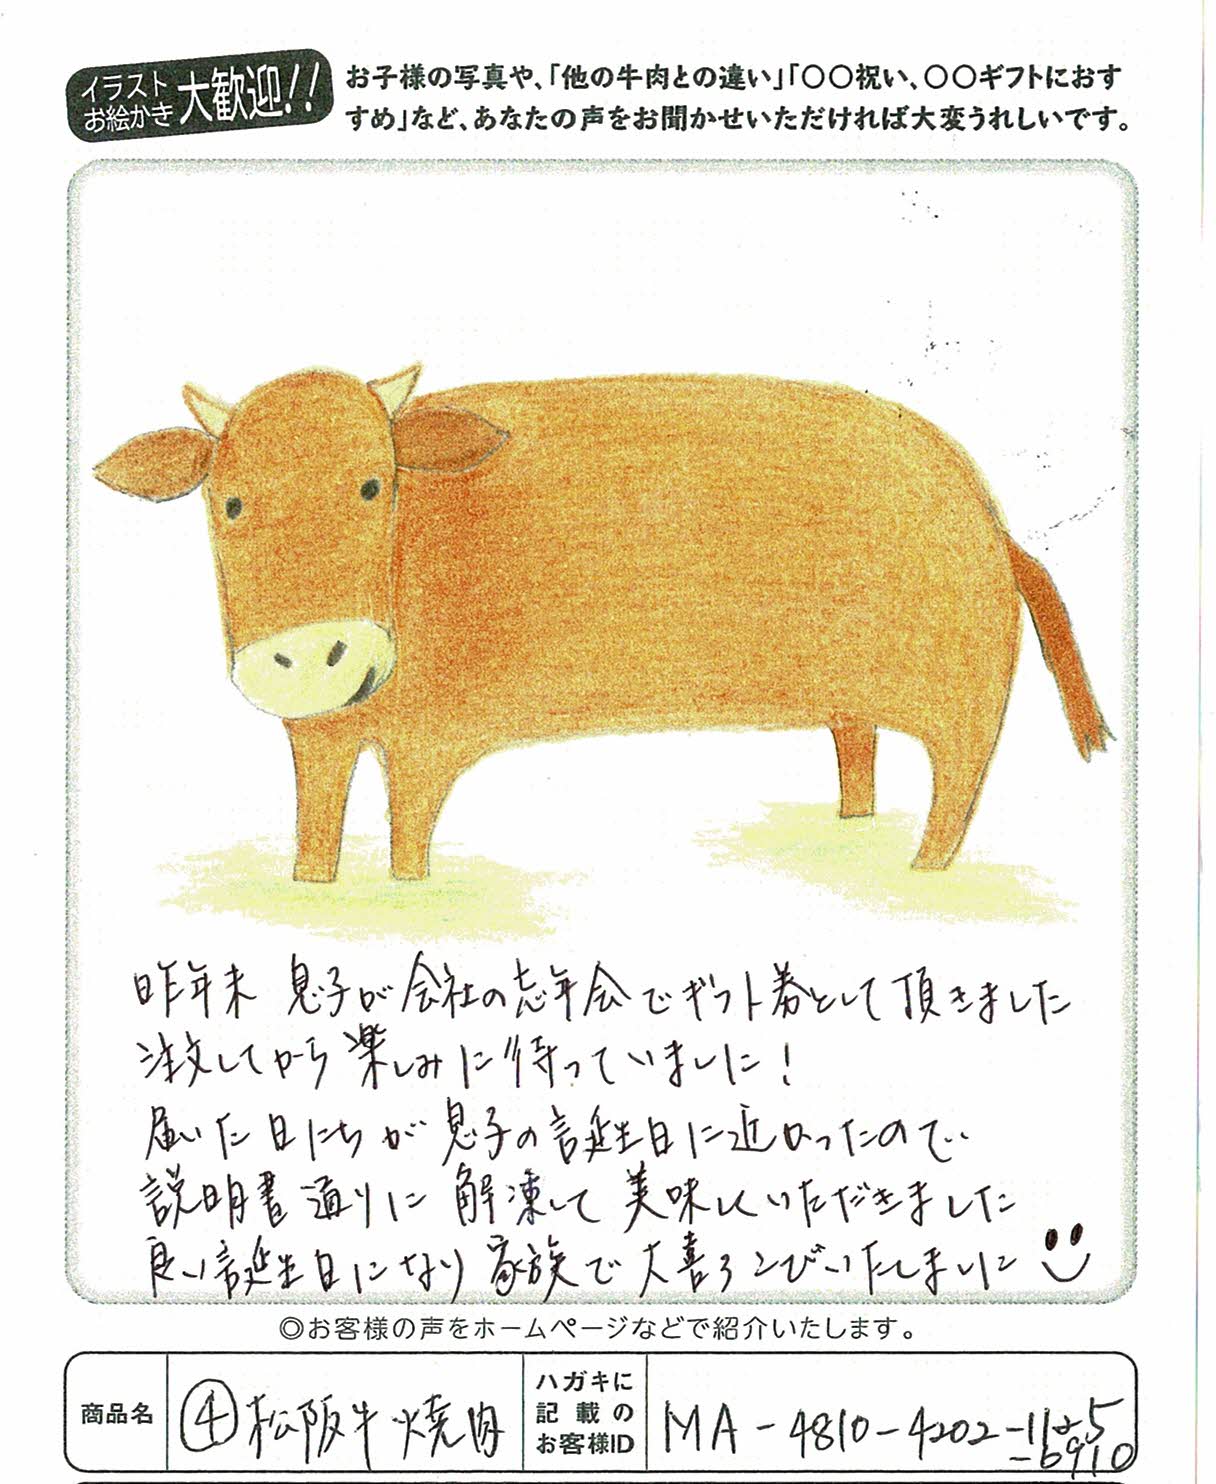 イラスト
お絵かき
大歓迎!!
お子様の写真や、「他の牛肉との違い」「〇〇祝い、〇〇ギフトにおす
すめ」など、あなたの声をお聞かせいただければ大変うれしいです。
昨年末 息子が会社の忘年会でギフト券として頂きました
注文してから楽しみに待っていました!
届いた日にちが息子の誕生日に近かったので
説明書通りに解凍して美味しくいただきました
良い誕生日になり家族で大喜ろこびいたしました
◎お客様の声をホームページなどで紹介いたします。
商品名
④松阪牛焼肉
ハガキに
記載の
お客様ID
MA-4810-4202-
-6910